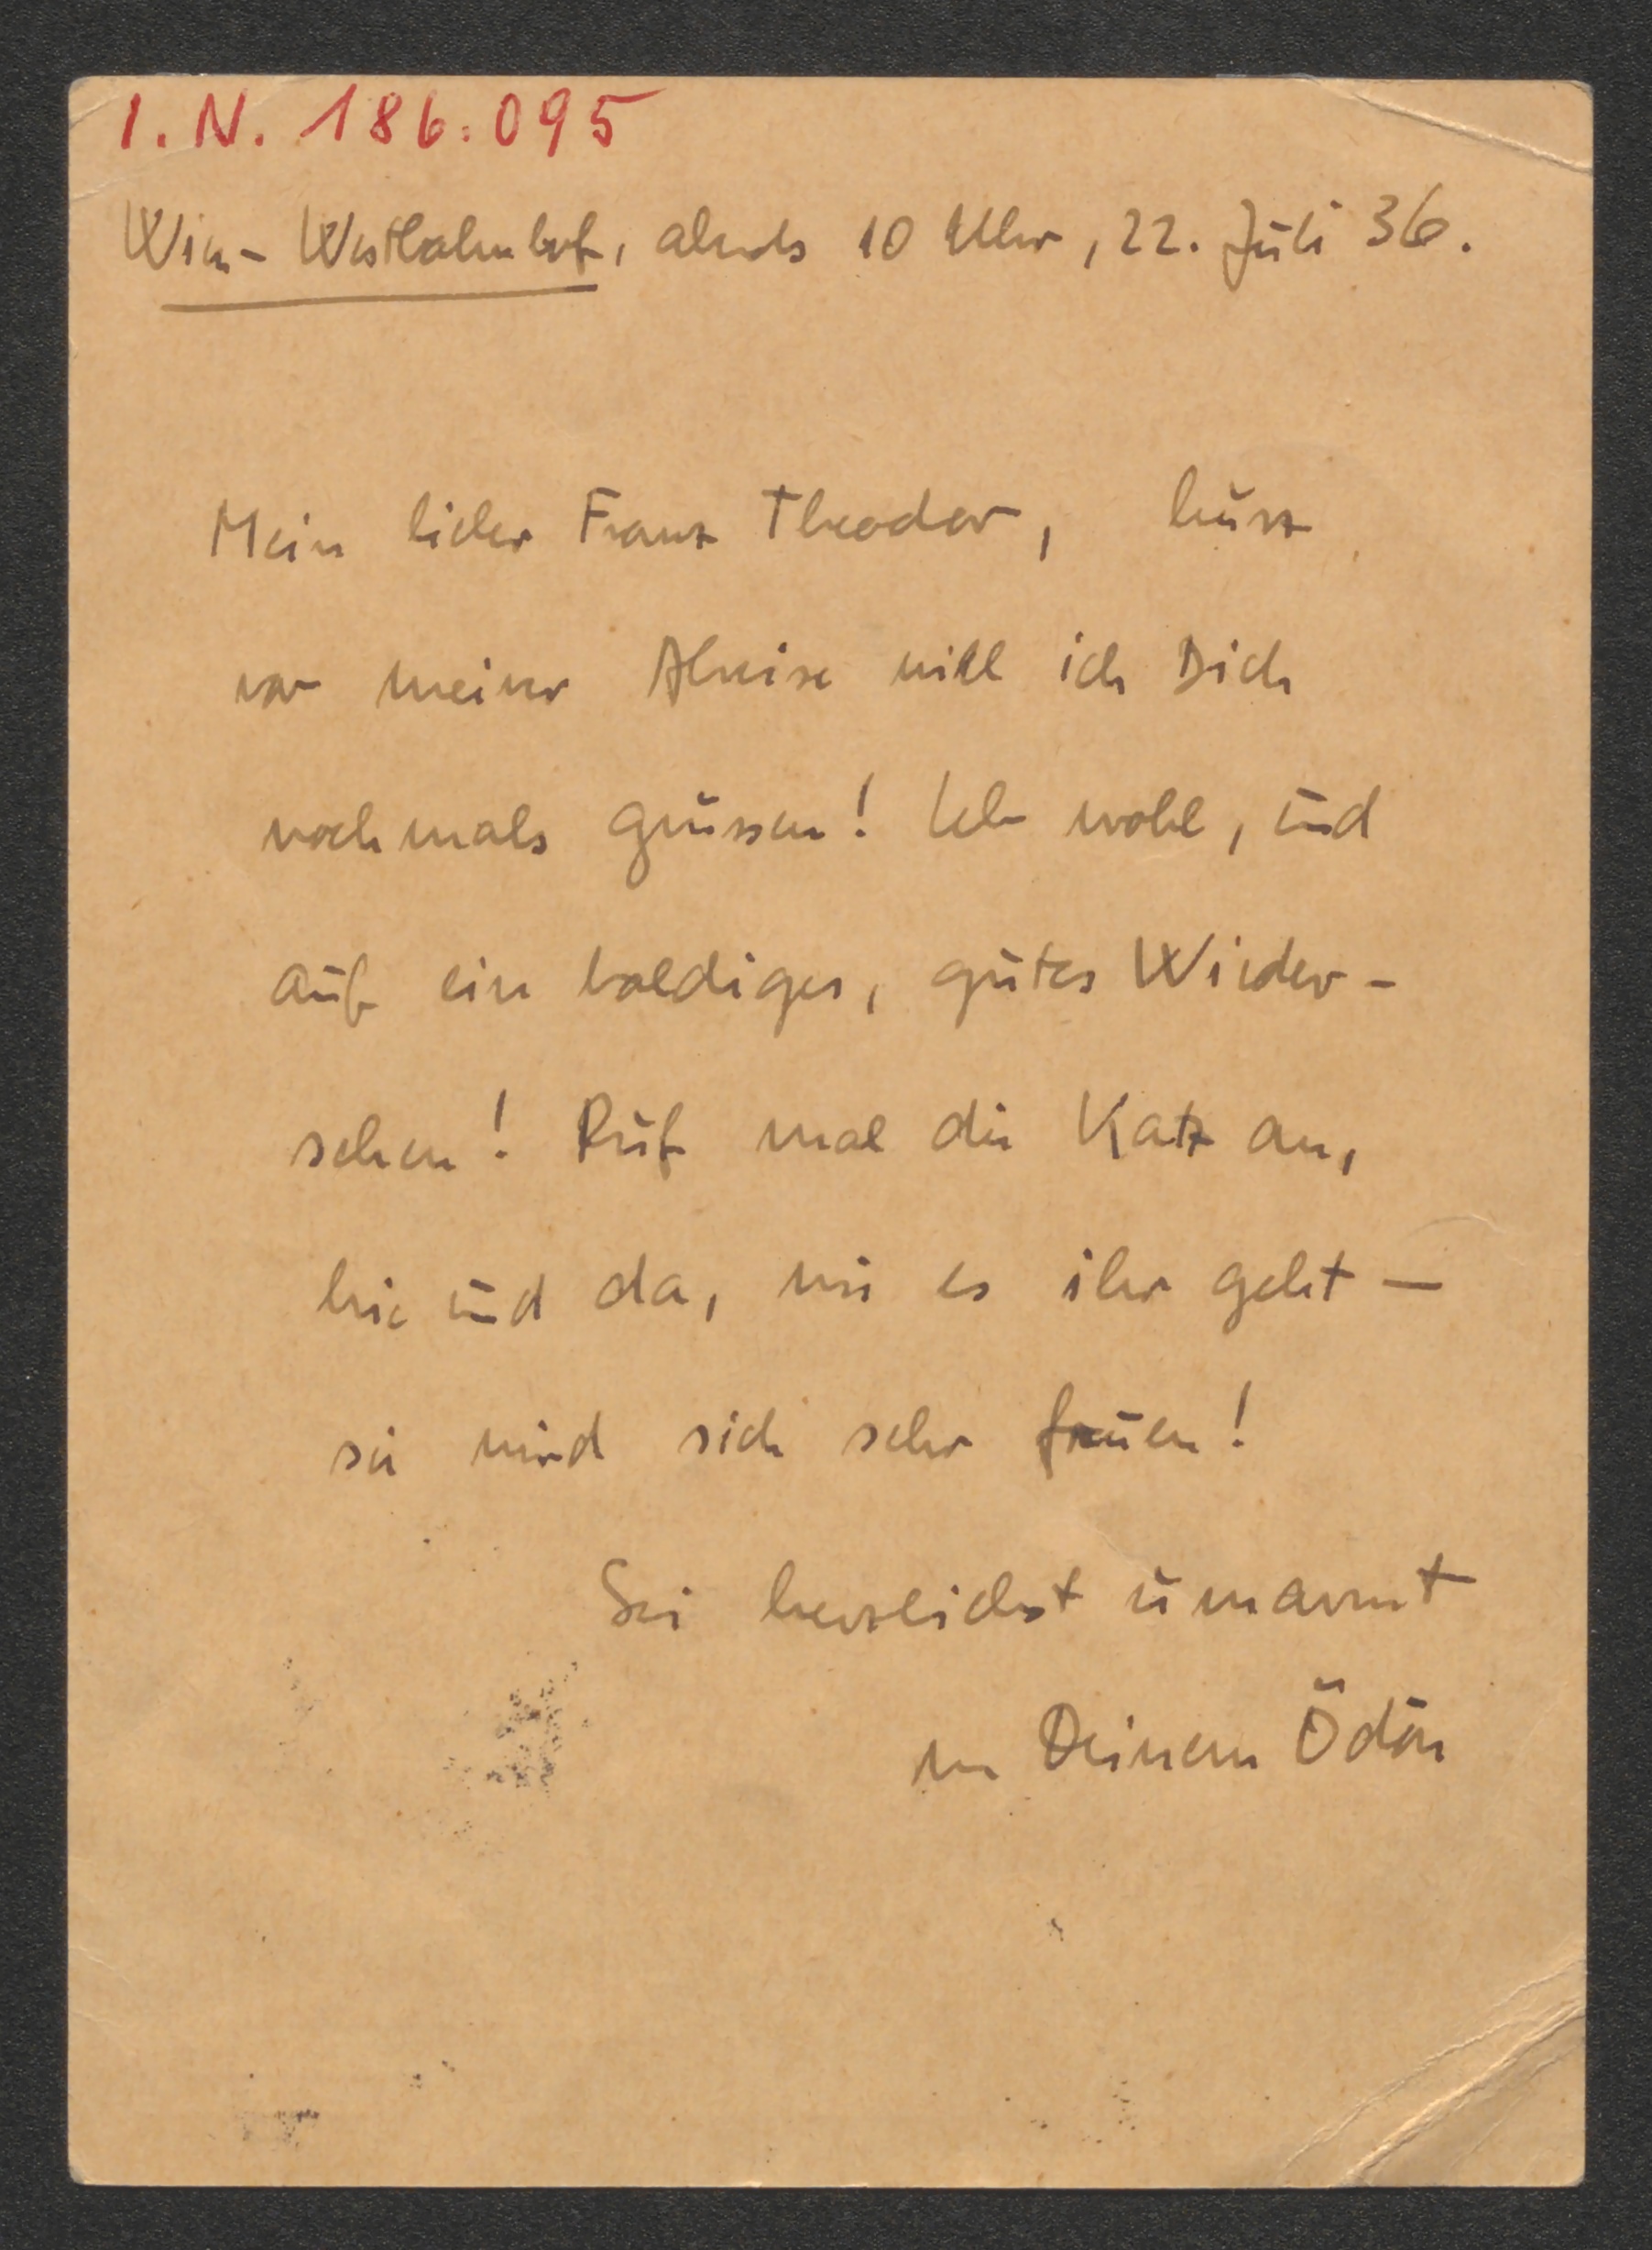 I.N. 186.095
Wien - Westbahnhof, abends 10 Uhr, 22. Juli 36.
Mein lieber Franz Theodor, kurz
vor meiner Abreise will ich Dich
nochmals grüssen! Leb wohl, und
auf ein baldiges, gutes Wieder-
sehen! Ruf mal die Katz an,
hie und da, wie es ihr geht —
sie wird sich sehr freuen!
Sei herzlichst umarmt
von Deinem Ödön